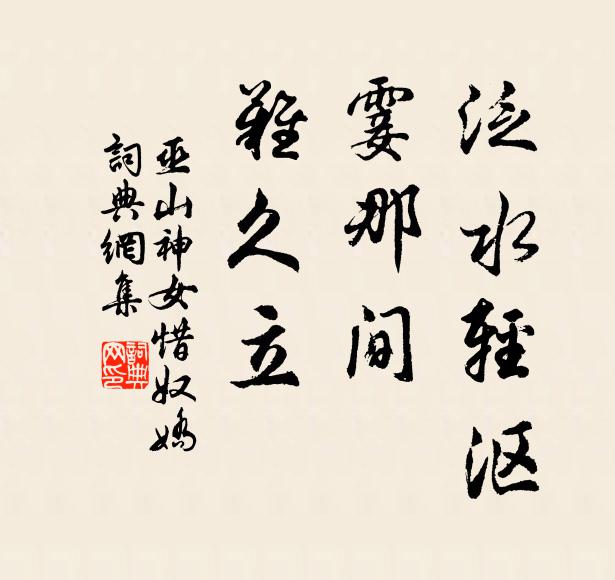 泛水輕沤
霎那间
難久立
巫山神女惜奴嬌
詞典網集
詞典
网印